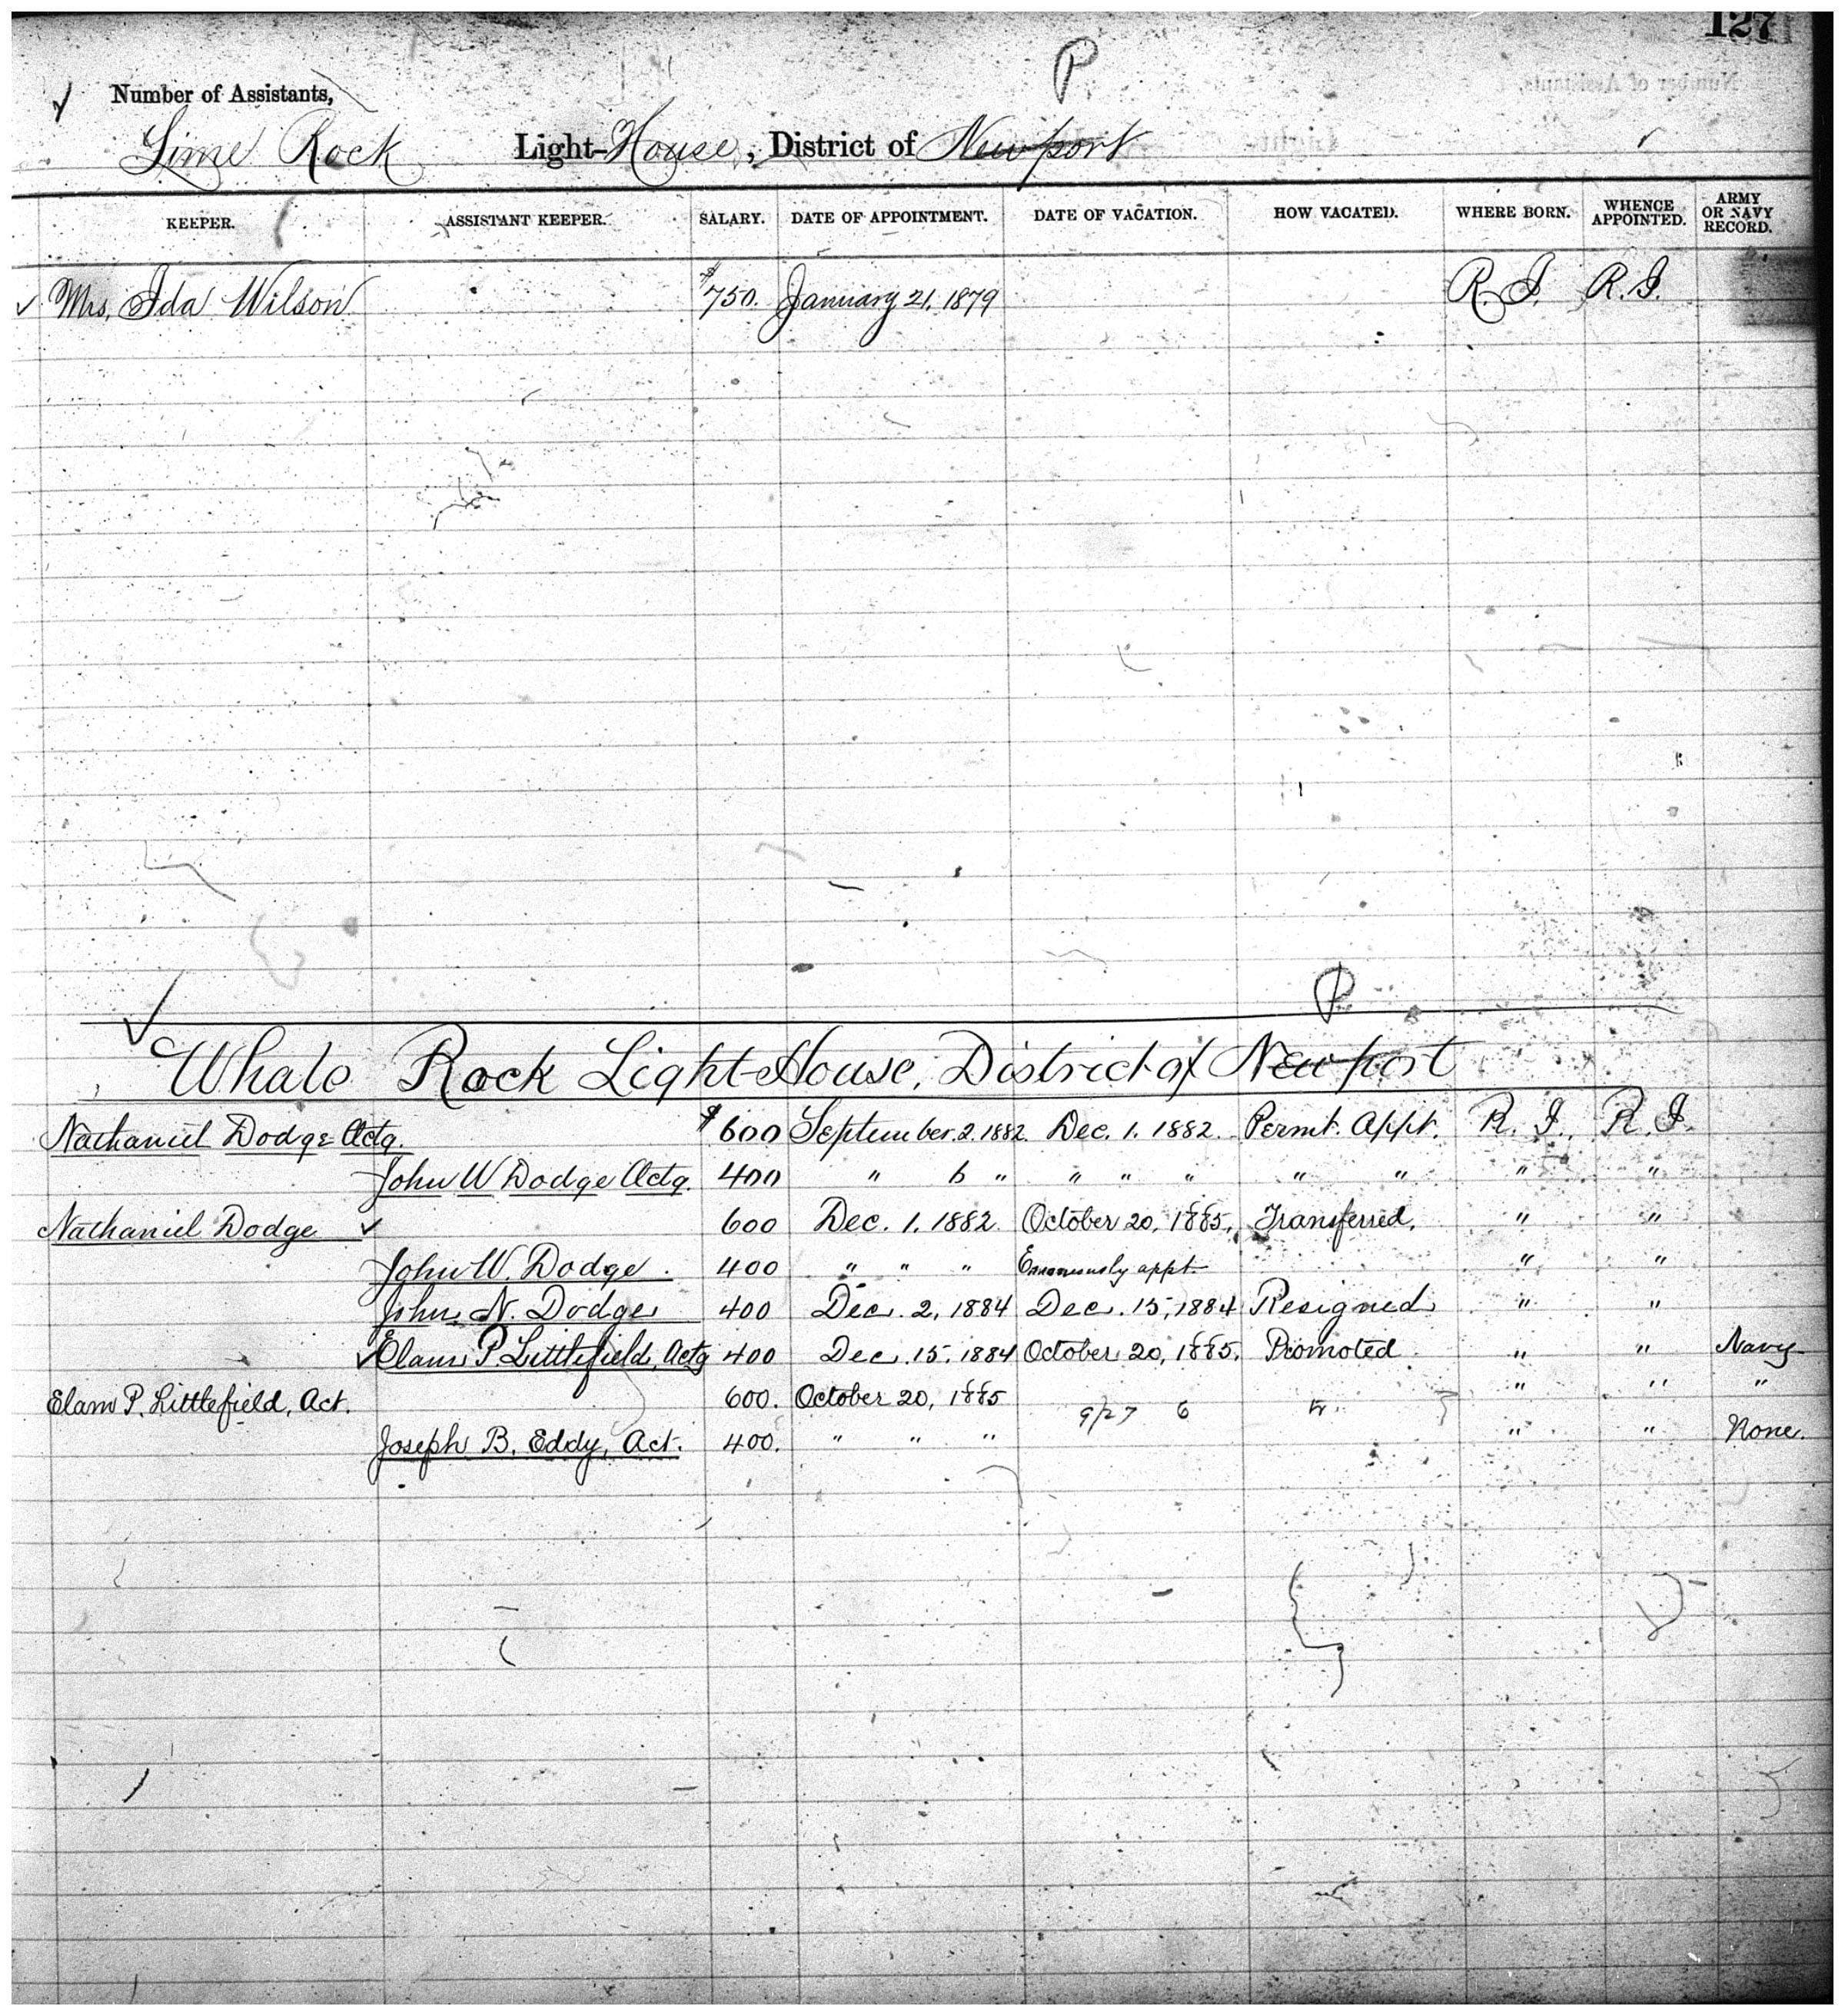 127
P
Number of Assistants,
Lime Rock Light-House, District of Newport
KEEPER. ASSISTANT KEEPER. SALARY. DATE OF APPOINTMENT. DATE OF VACATION. HOW VACATED. WHERE BORN. WHENCE APPOINTED. ARMY OR NAVY RECORD.
Mrs. Ida Wilson $750. January 21, 1879 R.I. R.I.
P
Whale Rock Light-House, District of Newport
Nathaniel Dodge Actg. $600 September 2. 1882. Dec. 1. 1882. Permt. Appt. R. I. R. I.
John W Dodge Actg. 400 " 6 " " " " " " " "
Nathaniel Dodge 600 Dec. 1. 1882. October 20, 1885. Transferred. " "
John W. Dodge. 400 " " " Erroneously appt. " "
John N. Dodge 400 Dec. 2, 1884 Dec. 15, 1884 Resigned " "
Elam P. Littlefield, Actg 400 Dec. 15. 1884 October 20, 1885. Promoted " " Navy
Elam P. Littlefield, Act. 600. October 20, 1885 " " "
9/27 6
Joseph B. Eddy, Act. 400. " " " " " None.